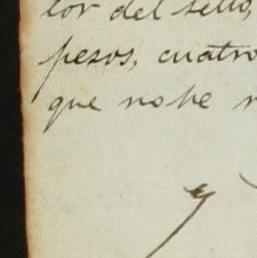 lor del sello,
pesos, cuatro
que no he
y